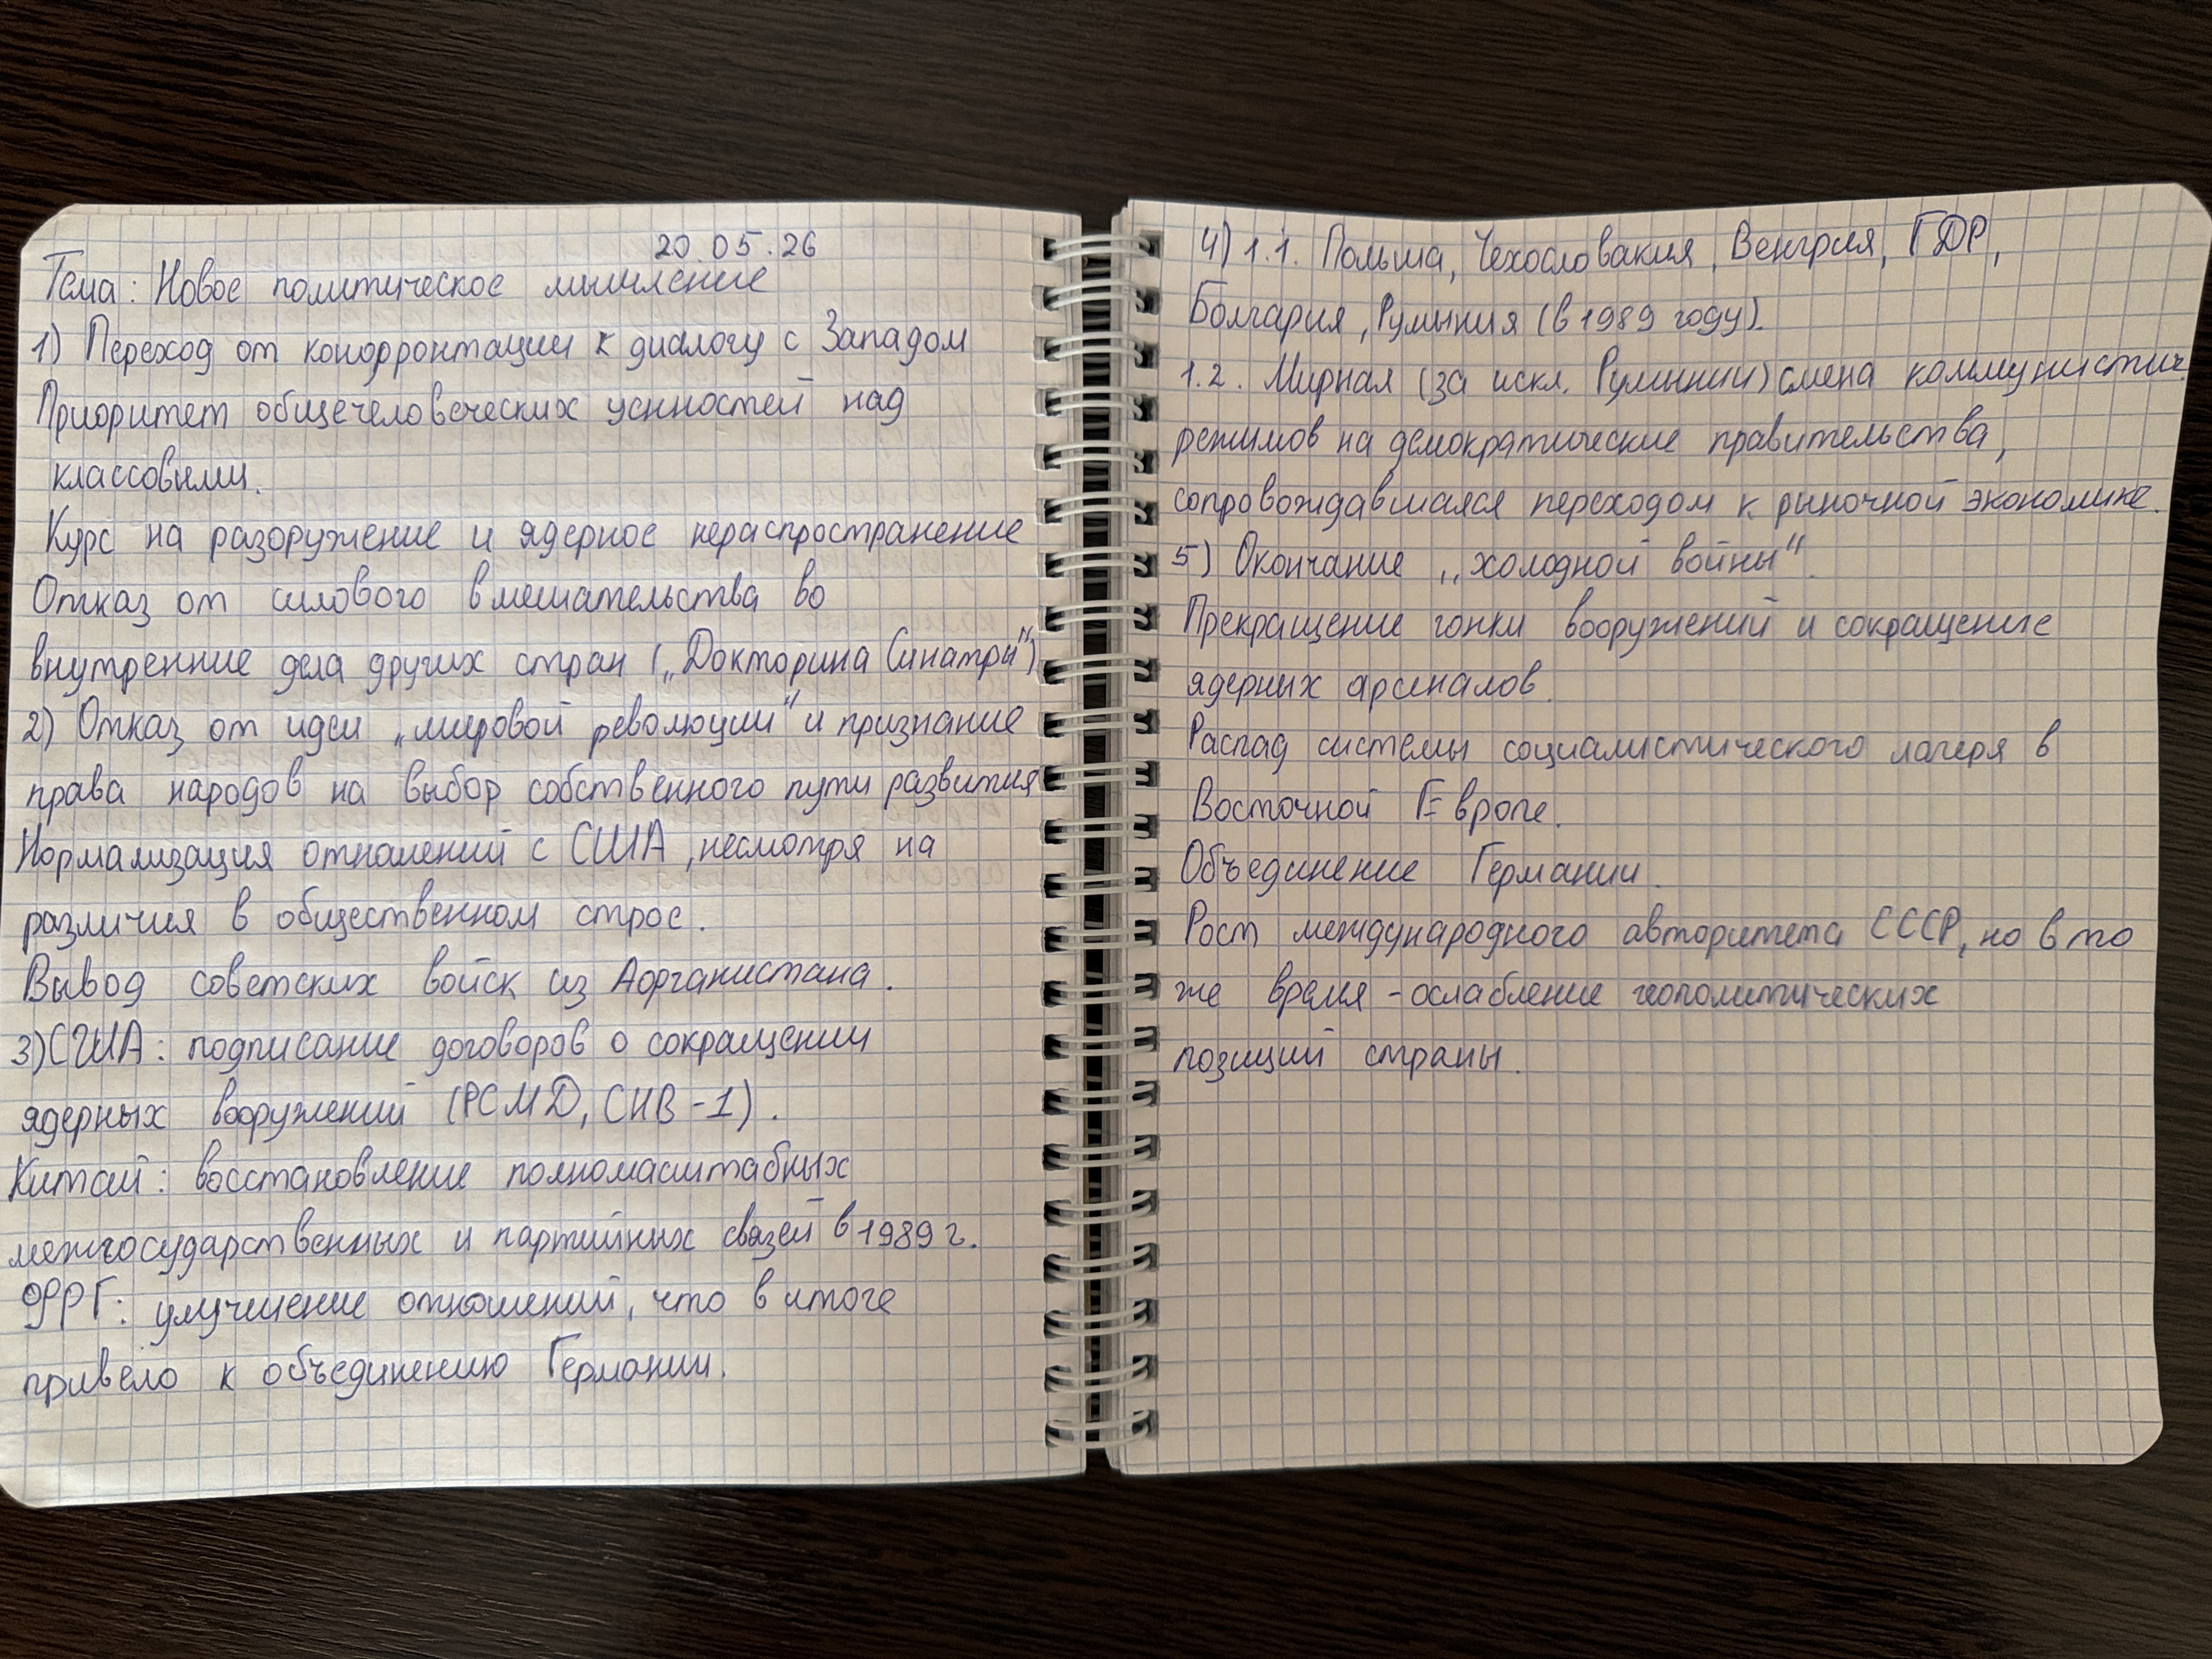 20.05.26
Тема: Новое политическое мышление
1) Переход от конфронтации к диалогу с Западом
Приоритет общечеловеческих ценностей над
классовыми.
Курс на разоружение и ядерное нераспространение
Отказ от силового вмешательства во
внутренние дела других стран („Докторина Синатры")
2) Отказ от идеи „мировой революции" и признание
права народов на выбор собственного пути развития
Нормализация отношений с США, несмотря на
различия в общественном строе.
Вывод советских войск из Афганистана.
3) США: подписание договоров о сокращении
ядерных вооружений (РСМД, СНВ-1).
Китай: восстановление полномасштабных
межгосударственных и партийных связей в 1989 г.
ФРГ: улучшение отношений, что в итоге
привело к объединению Германии.
4) 1.1. Польша, Чехословакия, Венгрия, ГДР,
Болгария, Румыния (в 1989 году).
1.2. Мирная (за искл. Румынии) смена коммунистич.
режимов на демократические правительства,
сопровождавшаяся переходом к рыночной экономике.
5) Окончание „холодной войны".
Прекращение гонки вооружений и сокращение
ядерных арсеналов.
Распад системы социалистического лагеря в
Восточной Европе.
Объединение Германии.
Рост международного авторитета СССР, но в то
же время - ослабление геополитических
позиций страны.